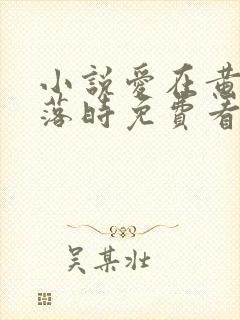 小説愛在黃
落時免費看
吳某壯